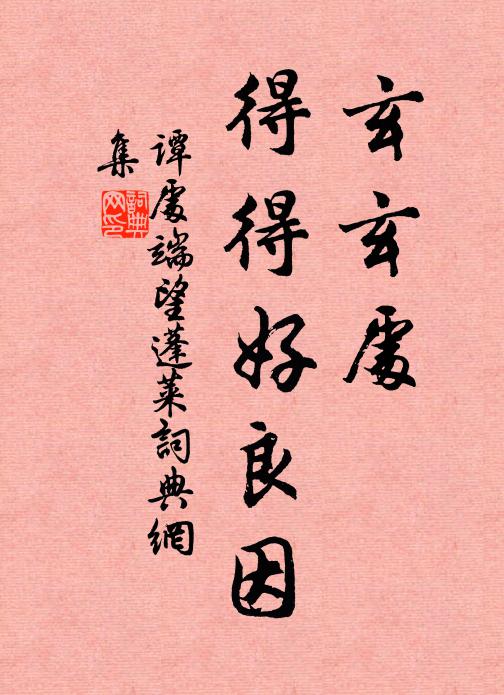 玄玄處
得得好良因
譚處端望蓬萊詞典網
集
詞典網印